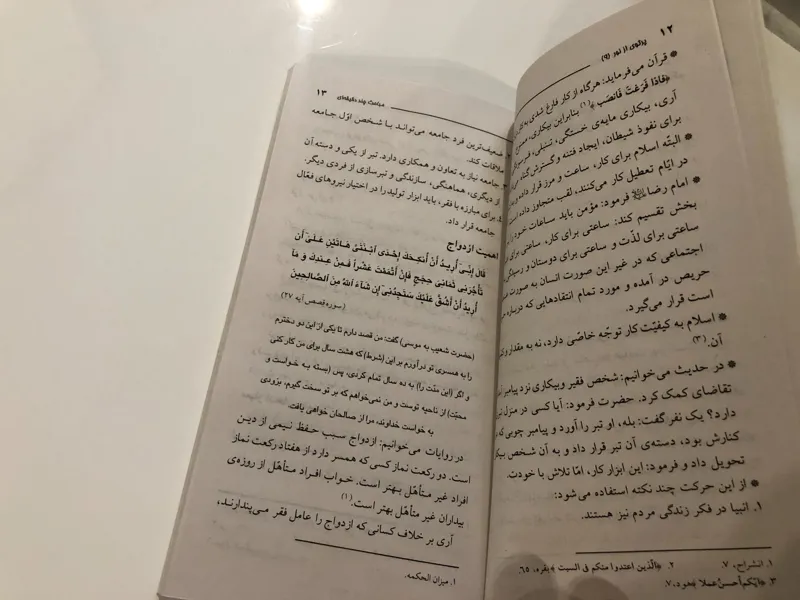 ۱۲ پرتوی از نور (۹)
* قرآن می‌فرماید: هرگاه از کار فارغ شدی به
﴿فَاذا فَرَغْتَ فَانصَب﴾ (۱) بنابراین بیکاری،
آری، بیکاری مایه‌ی خستگی، تنبلی،
برای نفوذ شیطان، ایجاد فتنه و گسترش
* البتّه اسلام برای کار، ساعت و مرز قرار داده
در ایّام تعطیل کار می‌کنند، لقب متجاوز داده است
* امام رضا علیه السلام فرمود: مؤمن باید ساعات خود را
بخش تقسیم کند: ساعتی برای کار، ساعتی برای
ساعتی برای لذّت و ساعتی برای دوستان و
اجتماعی که در غیر این صورت انسان به صورت
حریص در آمده و مورد تمام انتقادهایی که درباره
است قرار می‌گیرد.
* اسلام به کیفیّت کار توجّه خاصّی دارد، نه به مقدار و
آن. (۳)
* در حدیث می‌خوانیم: شخص فقیر و بیکاری نزد پیامبر
تقاضای کمک کرد. حضرت فرمود: آیا کسی در منزل
دارد؟ یک نفر گفت: بله، او تبر را آورد و پیامبر چوبی که
کنارش بود، دسته‌ی آن تبر قرار داد و به آن شخص
تحویل داد و فرمود: این ابزار کار، امّا تلاش با خودت.
* از این حرکت چند نکته استفاده می‌شود:
۱. انبیا در فکر زندگی مردم نیز هستند.
۱. انشراح، ۷. ۲. ﴿الّذین اعتدوا منکم فی السبت﴾ بقره، ۶۵.
۳. ﴿ایّکم أحسن عملا﴾ هود، ۷.
مباحث چند دقیقه‌ای ۱۳
ضعیف‌ترین فرد جامعه می‌تواند با شخص اوّل جامعه
ملاقات کند.
جامعه نیاز به تعاون و همکاری دارد. تبر از یکی و دسته آن
از دیگری، هماهنگی، سازندگی و تبرسازی از فردی دیگر.
برای مبارزه با فقر، باید ابزار تولید را در اختیار نیروهای فعّال
جامعه قرار داد.
اهمیت ازدواج
قَالَ إِنِّی أُرِیدُ أَنْ أُنکِحَکَ إِحْدَی ابْنَتَیَّ هَاتَیْنِ عَلَی أَن
تَأْجُرَنِی ثَمَانِیَ حِجَجٍ فَإِنْ أَتْمَمْتَ عَشْراً فَمِنْ عِندِکَ وَ مَا
أُرِیدُ أَنْ أَشُقَّ عَلَیْکَ سَتَجِدُنِی إِن شَاءَ اللهُ مِنَ الصَّالِحِینَ
(سوره قصص آیه ۲۷)
(حضرت شعیب به موسی) گفت: من قصد دارم تا یکی از این دو دخترم
را به همسری تو درآورم بر این (شرط) که هشت سال برای من کار کنی
و اگر (این مدّت را) به ده سال تمام کردی، پس (بسته به خواست و
محبّت) از ناحیه توست و من نمی‌خواهم که بر تو سخت گیرم، بزودی
به خواست خداوند، مرا از صالحان خواهی یافت.
در روایات می‌خوانیم: ازدواج سبب حفظ نیمی از دین
است. دو رکعت نماز کسی که همسر دارد از هفتاد رکعت نماز
افراد غیر متأهّل بهتر است. خواب افراد متأهّل از روزه‌ی
بیداران غیر متأهّل بهتر است. (۱)
آری بر خلاف کسانی که ازدواج را عامل فقر می‌پندارند،
۱. میزان الحکمه.